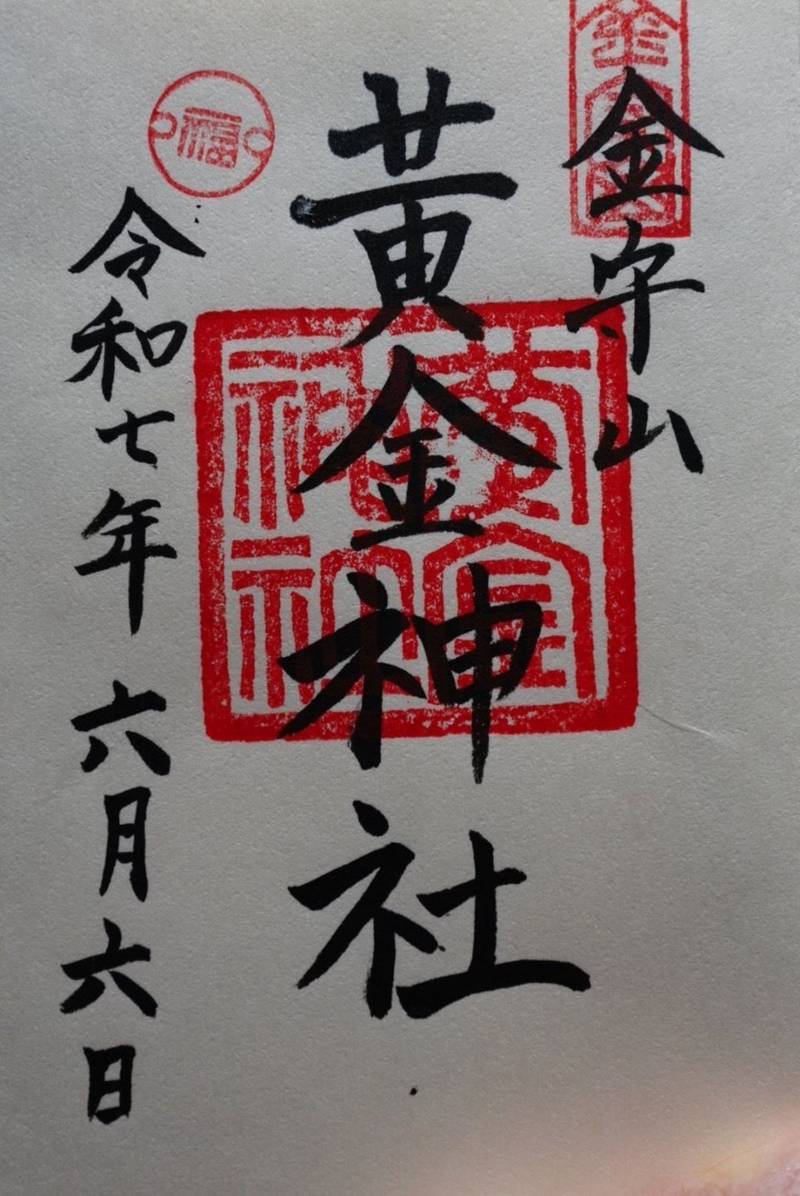 金守山
黄金神社
令和七年 六月六日
福